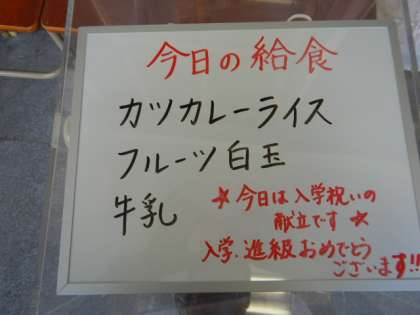 今日の給食
カツカレーライス
フルーツ白玉
牛乳
☆今日は入学祝いの
献立です☆
入学.進級おめでとう
ございます!!